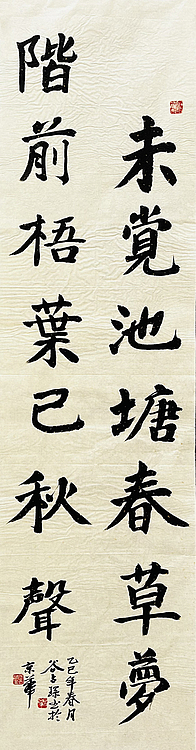 未覺池塘春草夢
階前梧葉已秋聲
乙巳年春月
京華